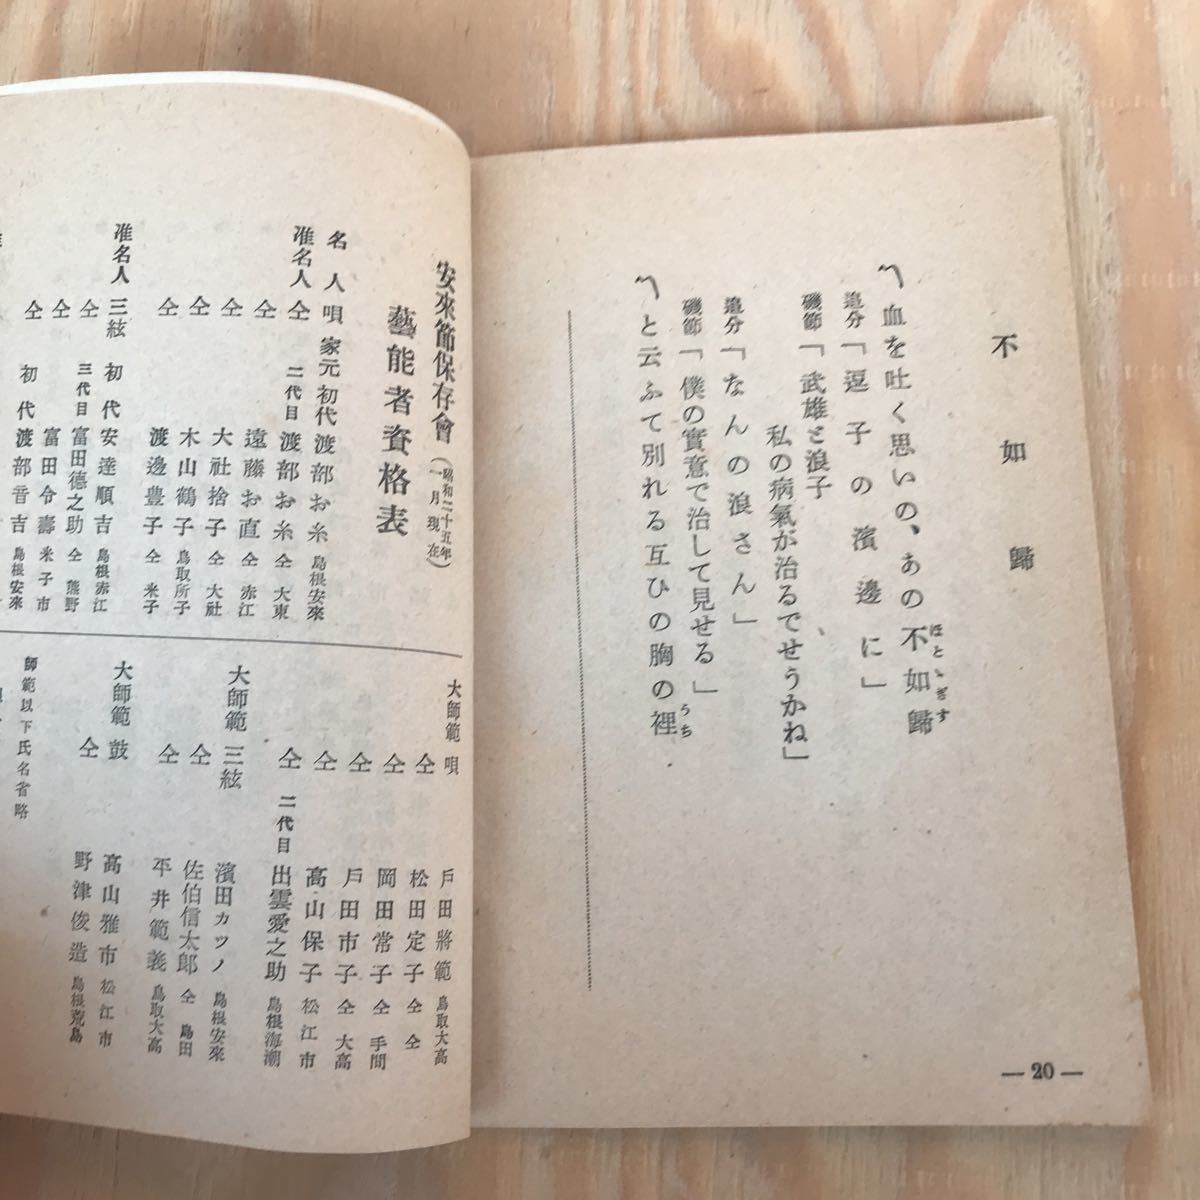 不如歸
〽血を吐く思いの、あの不如歸
ほととぎす
追分「逗子の濱邊に」
磯節「武雄と浪子
私の病氣が治るでせうかね」
追分「なんの浪さん」
磯節「僕の實意で治して見せる」
〽と云ふて別れる互ひの胸の裡
うち
— 20 —
安來節保存會(昭和二十五年一月現在)
藝能者資格表
名人 唄 家元 初代 渡部お糸 島根安來
准名人 仝 二代目 渡部お糸 仝 大東
仝 遠藤お直 仝 赤江
仝 大社捨子 仝 大社
仝 木山鶴子 鳥取所子
仝 渡邊豊子 仝 米子
准名人 三絃 初代 安達順吉 島根赤江
仝 三代目 富田德之助 仝 熊野
仝 富田令壽 米子市
仝 初代 渡部音吉 島根安來
大師範 唄 戶田將範 鳥取大高
仝 松田定子 仝 仝
仝 岡田常子 仝 手間
仝 戶田市子 仝 大高
仝 高山保子 松江市
仝 二代目 出雲愛之助 島根海潮
大師範 三絃 濱田カツノ 島根安來
仝 佐伯信太郎 仝 島田
仝 平井範義 鳥取大高
大師範 鼓 高山雅市 松江市
仝 野津俊造 島根荒島
師範以下氏名省略